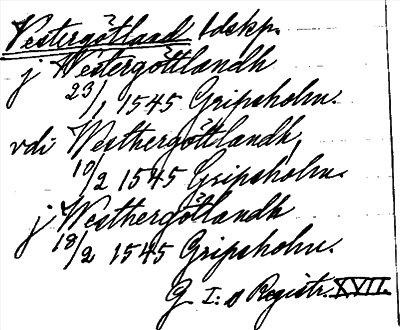 Vestergötland ldskp.
j Westergöttlandh
23/1 1545 Gripsholm.
vdi Westhergöttlandh,
10/2 1545 Gripsholm.
j Westhergötlandh
18/2 1545 Gripsholm.
G I:s Registr. XVII.